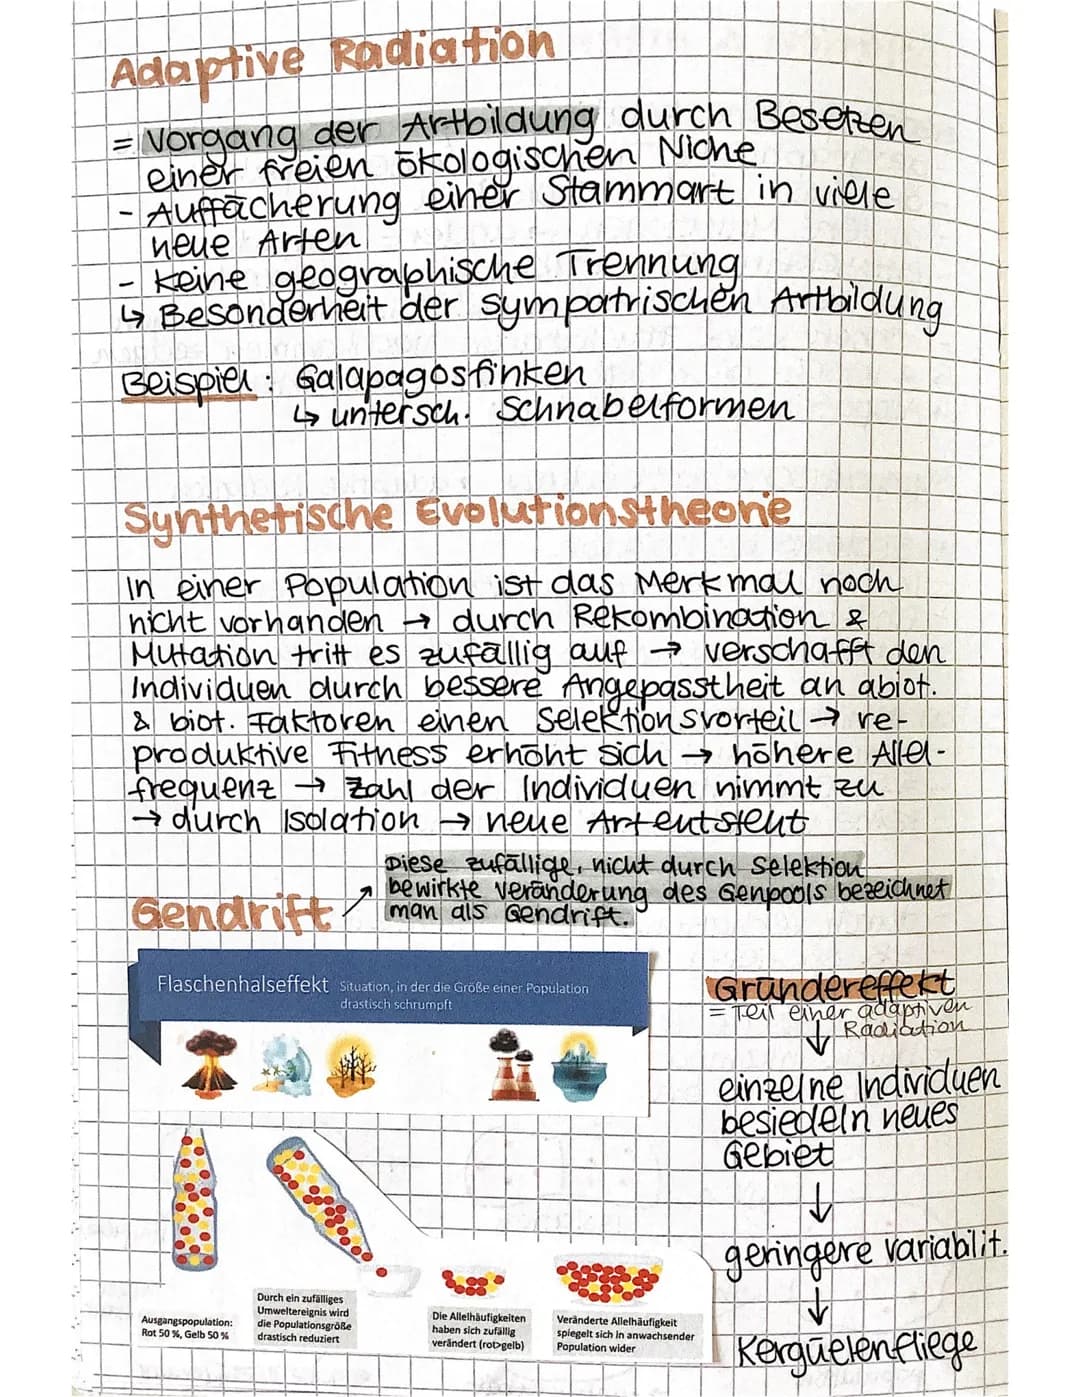 Adaptive Radiation
= Vorgang der Artbildung durch Besetzen
einer freien ökologischen Niche
- Auffächerung einer Stammart in viele
neue Arten
- keine geographische Trennung
↳ Besonderheit der sympatrischen Artbildung
Beispiel: Galapagosfinken
↳ untersch. Schnabelformen
Synthetische Evolutionstheorie
In einer Population ist das Merkmal noch
nicht vorhanden → durch Rekombination &
Mutation tritt es zufällig auf → verschafft den
Individuen durch bessere Angepasstheit an abiot.
& biot. Faktoren einen Selektionsvorteil → re-
produktive Fitness erhöht sich → höhere Allel-
frequenz → Zahl der Individuen nimmt zu
→ durch Isolation → neue Art entsteht
Diese zufällige, nicht durch Selektion
bewirkte Veränderung des Genpools bezeichnet
man als Gendrift.
Gendrift
Flaschenhalseffekt Situation, in der die Größe einer Population
drastisch schrumpft
Ausgangspopulation:
Rot 50 %, Gelb 50 %
Durch ein zufälliges
Umweltereignis wird
die Populationsgröße
drastisch reduziert
Die Allelhäufigkeiten
haben sich zufällig
verändert (rot>gelb)
Veränderte Allelhäufigkeit
spiegelt sich in anwachsender
Population wider
Gründereffekt
= Teil einer adaptiven
Radiation
↓
einzelne Individuen
besiedeln neues
Gebiet
↓
geringere variabilit.
↓
Kergüelenfliege